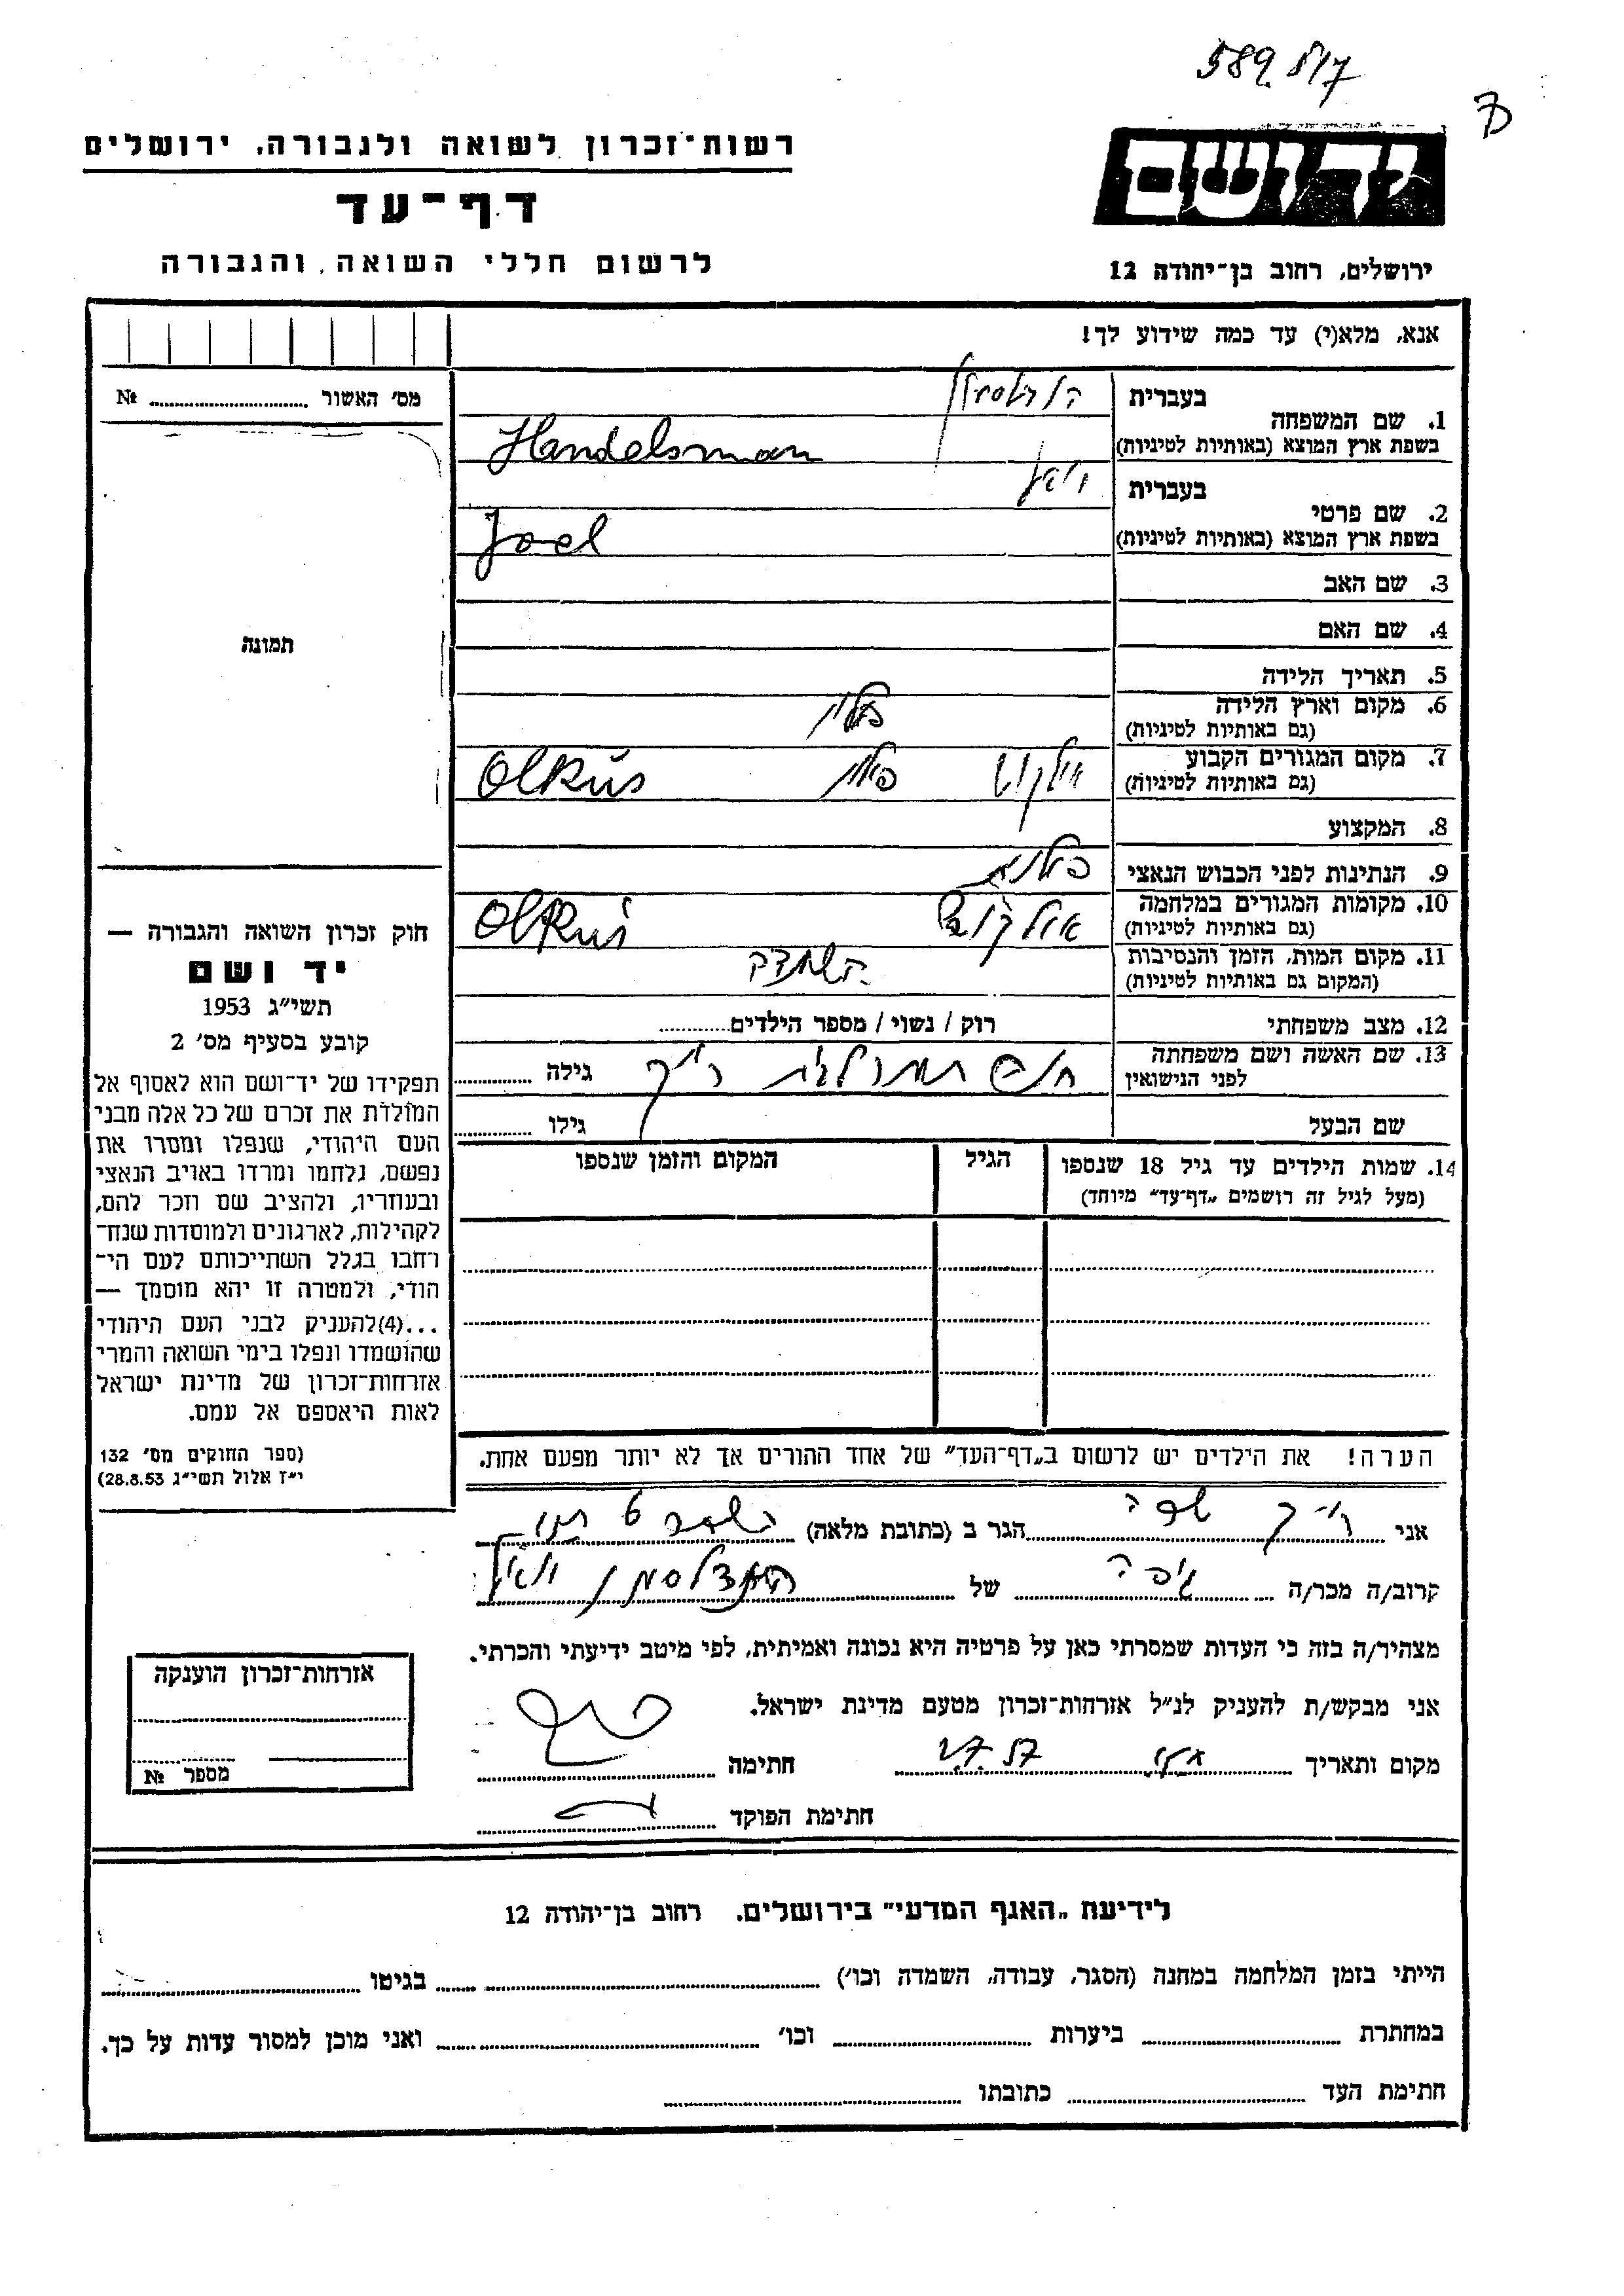 589817
רשות־זכרון לשואה ולגבורה, ירושלים
דף־עד
לרשום חללי השואה והגבורה
יד ושם
ירושלים, רחוב בן־יהודה 12
אנא, מלא(י) עד כמה שידוע לך!
מס׳ האשור № 
תמונה
חוק זכרון השואה והגבורה —
יד ושם
תשי״ג 1953
קובע בסעיף מס׳ 2
תפקידו של יד־ושם הוא לאסוף אל
המולדת את זכרם של כל אלה מבני
העם היהודי, שנפלו ומסרו את
נפשם, נלחמו ומרדו באויב הנאצי
ובעוזריו, ולהציב שם וזכר להם,
לקהילות, לארגונים ולמוסדות שנח־
רחבו בגלל השתייכותם לעם הי־
הודי, ולמטרה זו יהא מוסמך —
...(4)להעניק לבני העם היהודי
שהושמדו ונפלו בימי השואה והמרי
אזרחות־זכרון של מדינת ישראל
לאות היאספם אל עמם.
(ספר החוקים מס׳ 132
י״ז אלול תשי״ג 28.8.53)
1. שם המשפחה בעברית הנדלסמן
בשפת ארץ המוצא (באותיות לטיניות) Handelsman
2. שם פרטי בעברית יואל
בשפת ארץ המוצא (באותיות לטיניות) Joel
3. שם האב
4. שם האם
5. תאריך הלידה
6. מקום וארץ הלידה
(גם באותיות לטיניות) פולין
7. מקום המגורים הקבוע
(גם באותיות לטיניות) אולקוש פולין Olkúś
8. המקצוע
9. הנתינות לפני הכבוש הנאצי פולנית
10. מקומות המגורים במלחמה
(גם באותיות לטיניות) אולקוש Olkuś
11. מקום המות, הזמן והנסיבות
(המקום גם באותיות לטיניות) השמדה
12. מצב משפחתי רוק / נשוי / מספר הילדים
13. שם האשה ושם משפחתה
לפני הנישואין מולדת גילה
שם הבעל גילו
14. שמות הילדים עד גיל 18 שנספו הגיל המקום והזמן שנספו
(מעל לגיל זה רושמים „דף־עד״ מיוחד)
הערה! את הילדים יש לרשום ב„דף־העד״ של אחד ההורים אך לא יותר מפעם אחת.
אני הגר ב (כתובת מלאה)
קרוב/ה מכר/ה גיסה של הנדלסמן יואל
מצהיר/ה בזה כי העדות שמסרתי כאן על פרטיה היא נכונה ואמיתית, לפי מיטב ידיעתי והכרתי.
אני מבקש/ת להעניק לנ״ל אזרחות־זכרון מטעם מדינת ישראל.
מקום ותאריך חתימה
חתימת הפוקד
אזרחות־זכרון הוענקה
מספר №
לידיעת „האגף המדעי״ בירושלים, רחוב בן־יהודה 12
הייתי בזמן המלחמה במחנה (הסגר, עבודה, השמדה וכו׳) בגיטו
במחתרת ביערות וכו׳ ואני מוכן למסור עדות על כך.
חתימת העד כתובתו